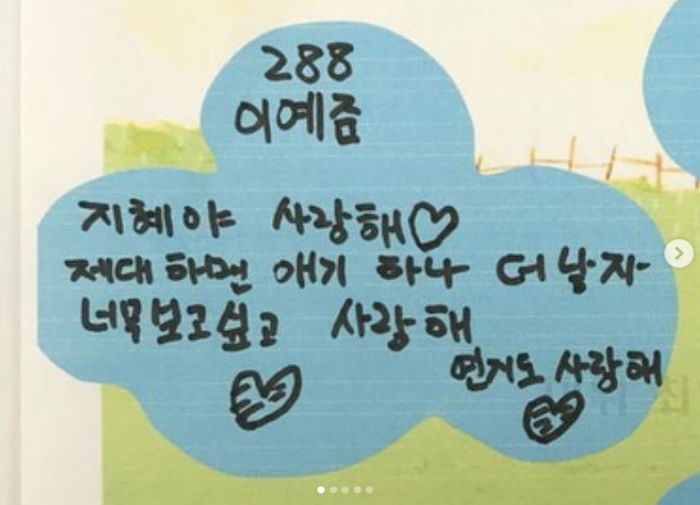 288
이예줌
지혜야 사랑해♡
제대 하면 애기 하나 더 낳자
너무 보고싶고 사랑해
연지도 사랑해